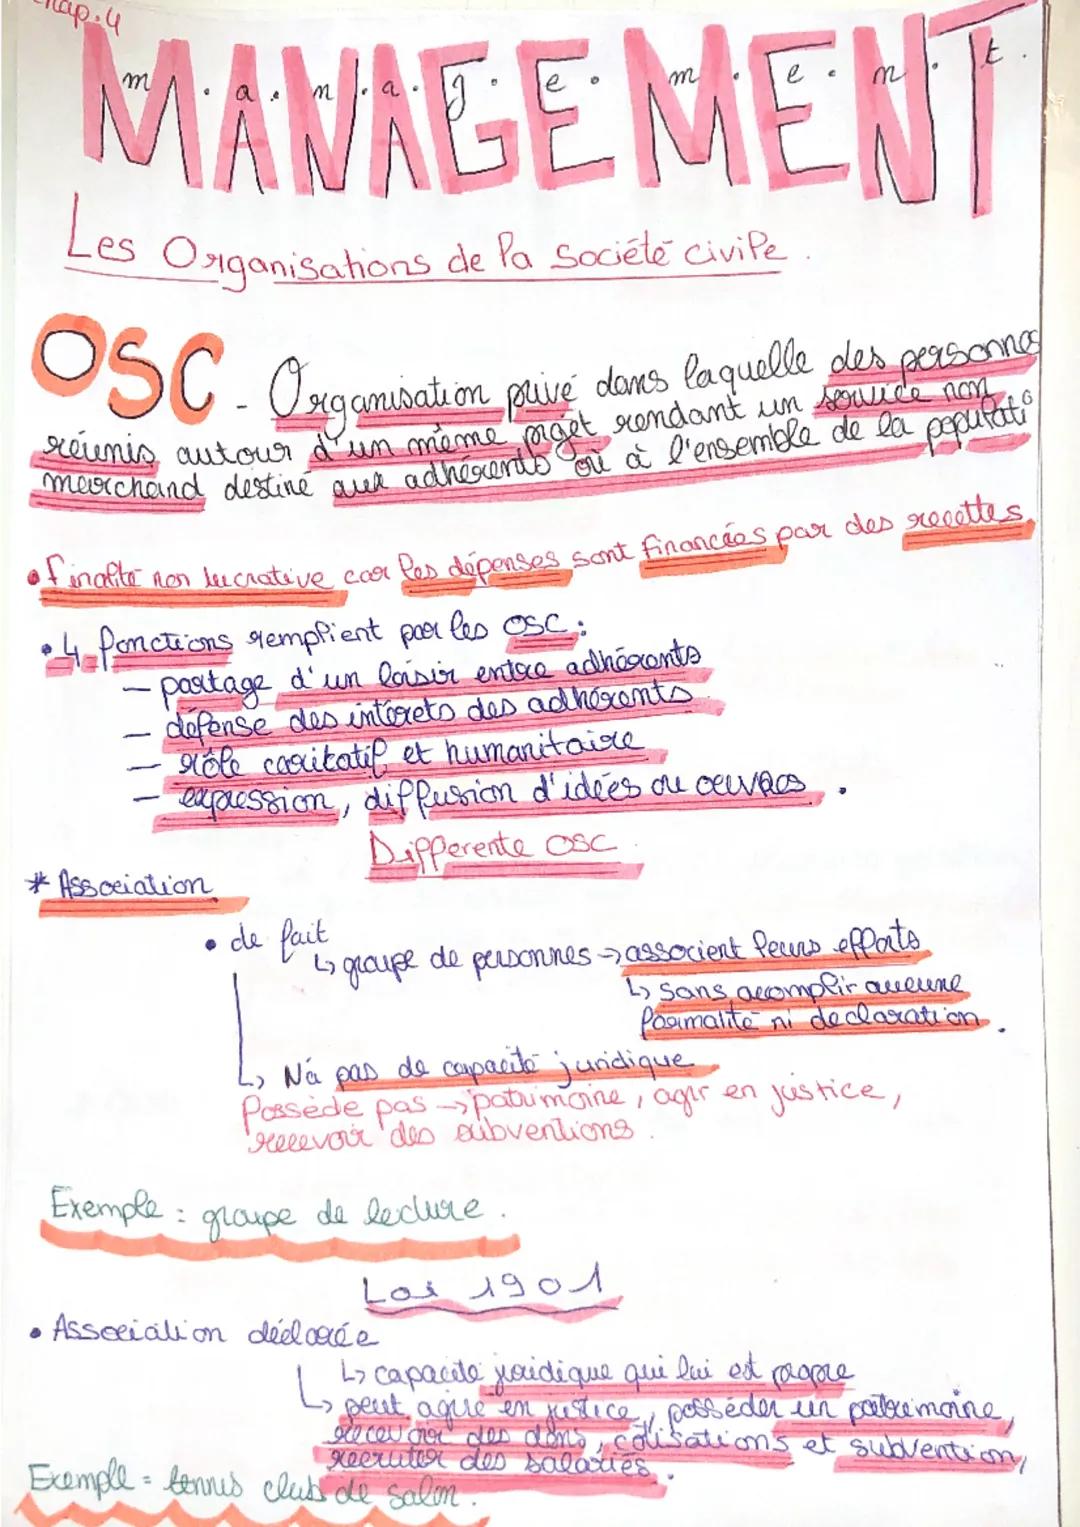 Chap.4
MANAGEMENT
m.a.n.a.g.e.m.e.n.t.
Les Organisations de la société civile.
OSC - Organisation privé dans laquelle des personnes
réunis autour d'un même projet rendant un service non
marchand destiné aux adhérents où à l'ensemble de la populatio
• finalité non lucrative car les dépenses sont financées par des recettes
• 4 fonctions remplient par les OSC :
- partage d'un loisir entre adhérents
- défense des intérets des adhérents
- rôle caritatif et humanitaire
- expression, diffusion d'idées ou oeuvres.
Differente OSC
* Association
• de fait
↳ groupe de personnes → associent leurs efforts
↳ sans acomplir aucune
formalité ni declaration.
↳ N'a pas de capacité juridique
Possède pas → patrimoine, agir en justice,
recevoir des subventions.
Exemple : groupe de lecture.
Loi 1901
• Association déclarée
↳ capacité juridique qui lui est propre
↳ peut agire en justice, posséder un patrimoine,
recevoir des dons, cotisations et subvention,
recruter des salariés.
Exemple = tennis club de salon.